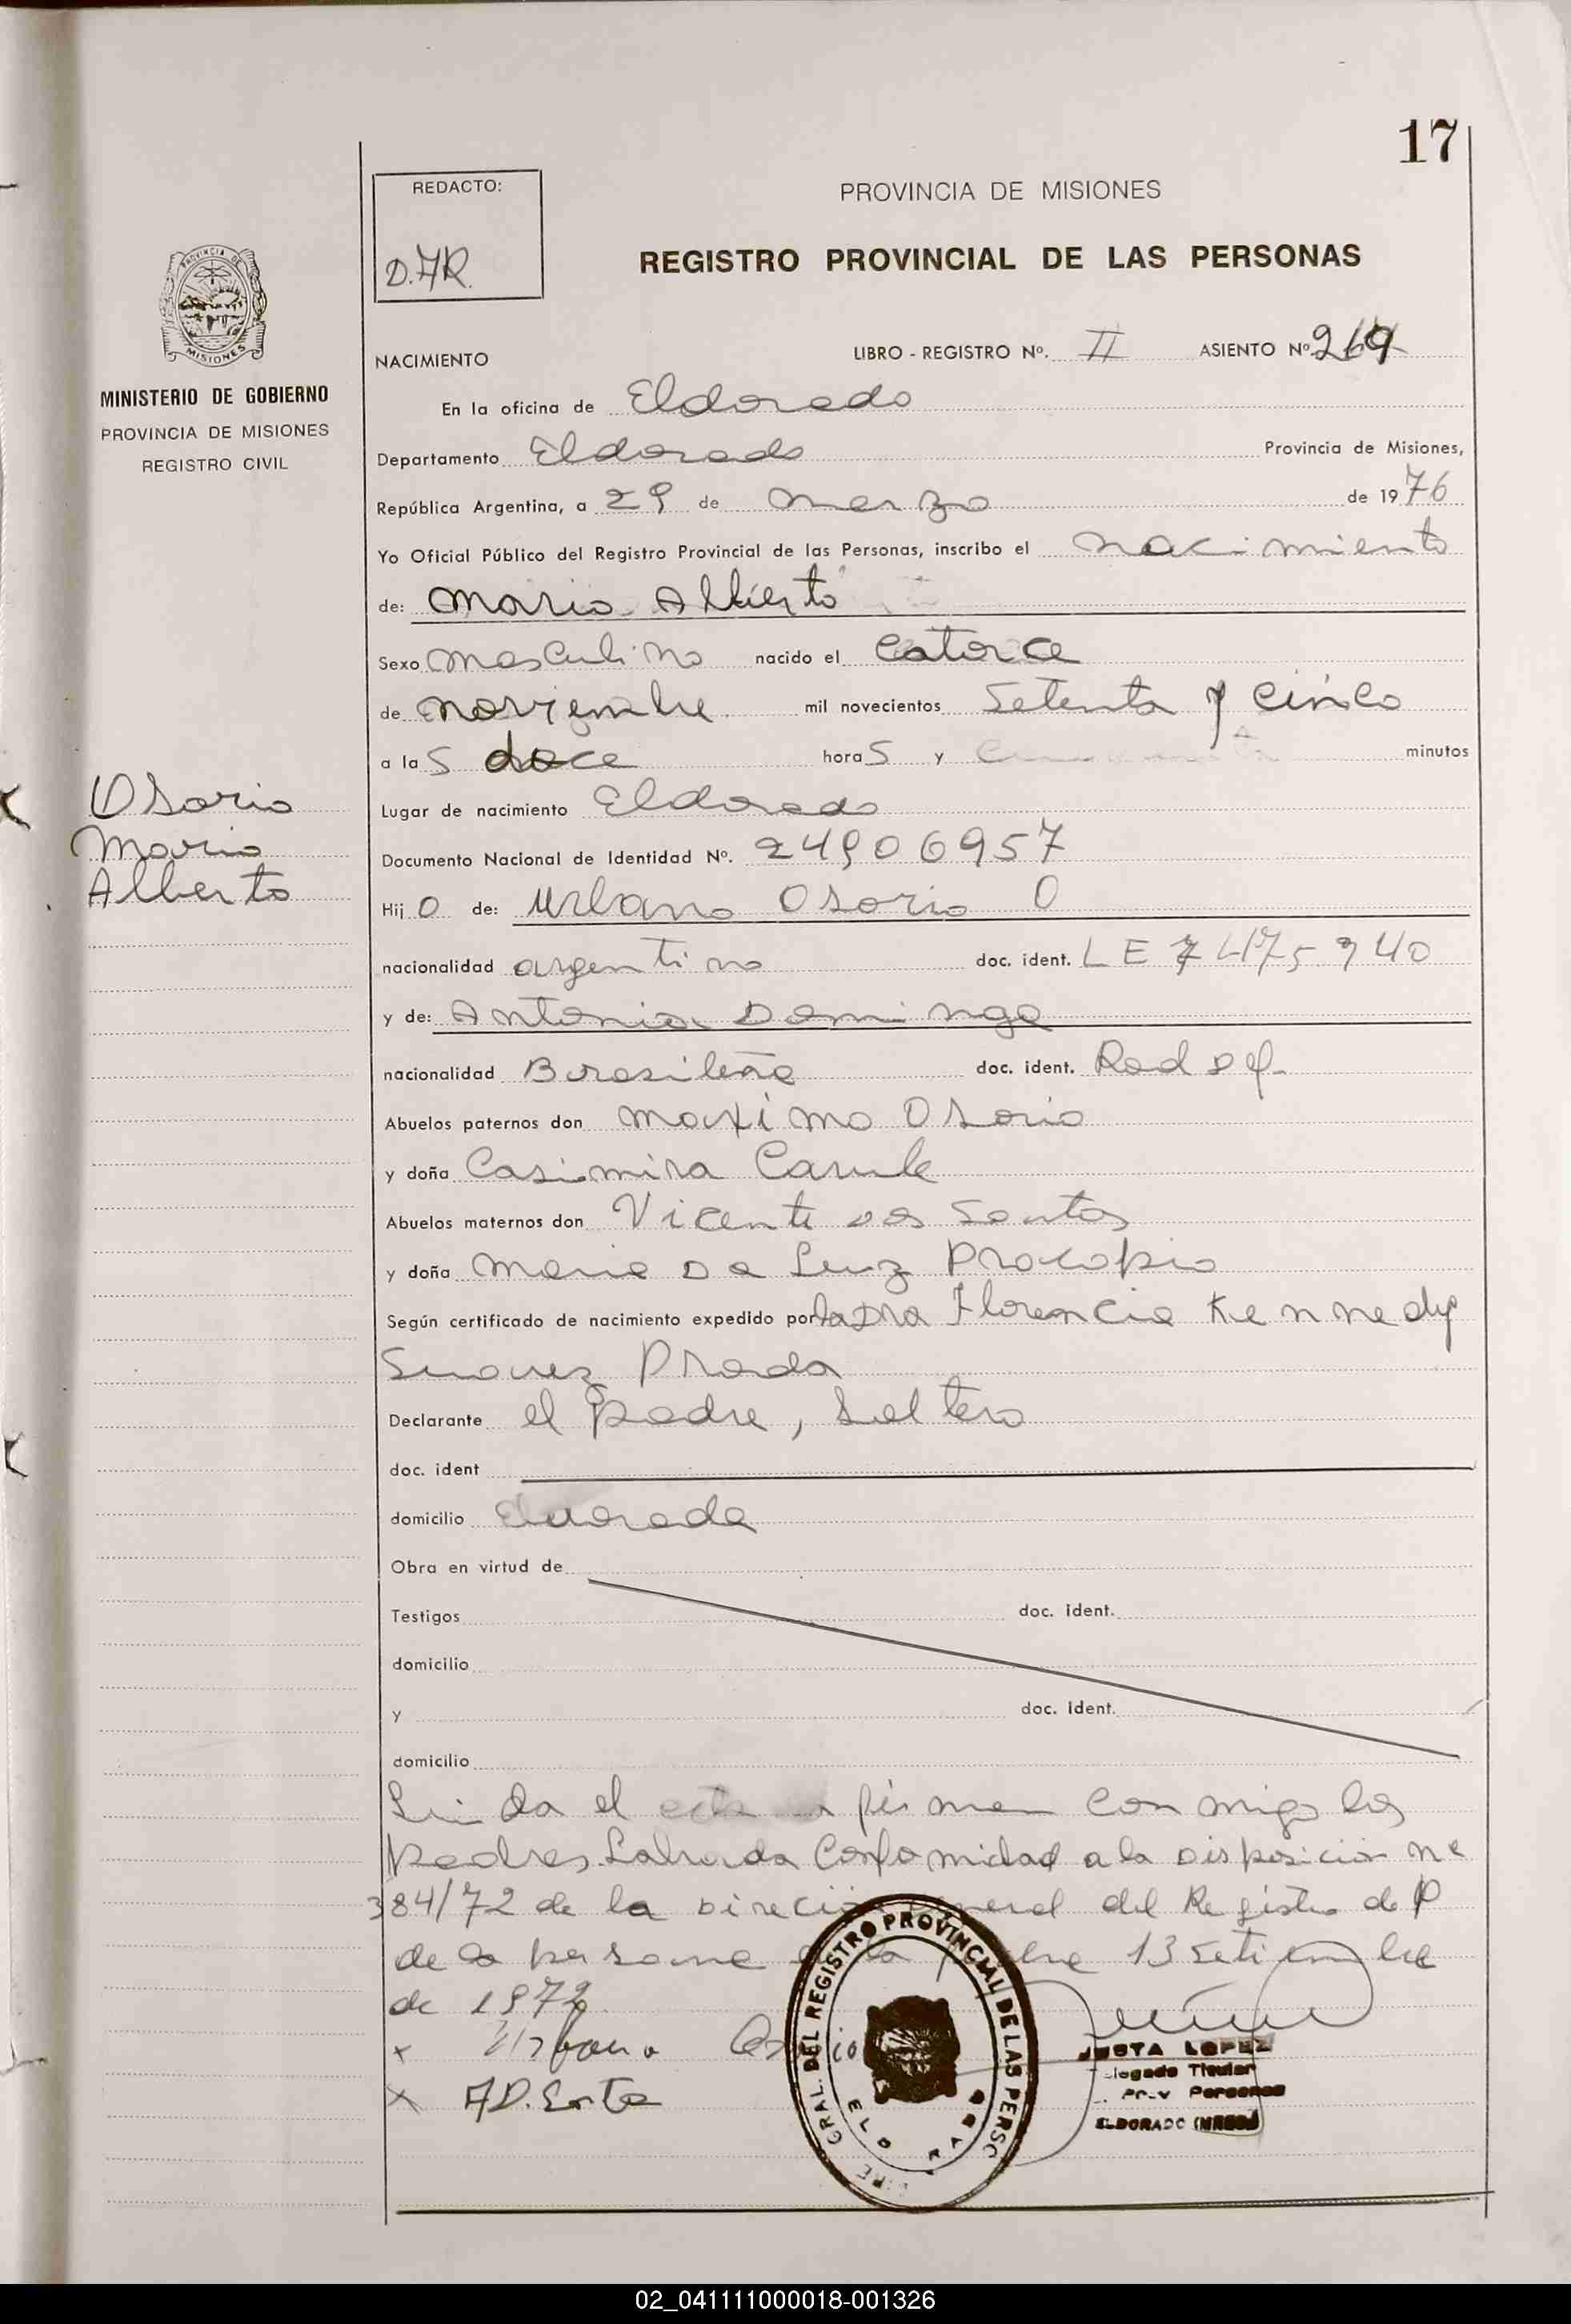 17
REDACTO:
D.A.R.
PROVINCIA DE MISIONES
REGISTRO PROVINCIAL DE LAS PERSONAS
PROVINCIA DE
MISIONES
MINISTERIO DE GOBIERNO
PROVINCIA DE MISIONES
REGISTRO CIVIL
NACIMIENTO LIBRO - REGISTRO Nº. II ASIENTO Nº 269
En la oficina de Eldorado
Departamento Eldorado Provincia de Misiones,
República Argentina, a 29 de marzo de 1976
Yo Oficial Público del Registro Provincial de las Personas, inscribo el nacimiento
de: Mario Alberto
Sexo masculino nacido el catorce
de noviembre mil novecientos setenta y cinco
a las doce horas y minutos
Osorio
Mario
Alberto
Lugar de nacimiento Eldorado
Documento Nacional de Identidad Nº. 24906957
Hijo de: Urbano Osorio
nacionalidad argentino doc. ident. LE 7475940
y de: Antonia Dominga
nacionalidad Brasileña doc. ident.
Abuelos paternos don Maximo Osorio
y doña Casimira
Abuelos maternos don Vicente dos Santos
y doña Maria Da Luz Procopio
Según certificado de nacimiento expedido por la Dra Florencia Kennedy
Suarez Prada
Declarante el padre, soltero
doc. ident
domicilio Eldorado
Obra en virtud de
Testigos doc. ident.
domicilio
y doc. ident.
domicilio
el acta firman conmigo los
padres. Labrada Conformidad a la Disposicion nº
384/72 de la Direcion General del Registro de P
de la persona 13 setiembre
de 1972
x Urbano Osorio
x A D. Santos
GRAL. DEL REGISTRO PROVINCIAL DE LAS PERSO
ELDORADO
JUSTA LOPEZ
legado Titular
Prov Personas
ELDORADO
02_041111000018-001326